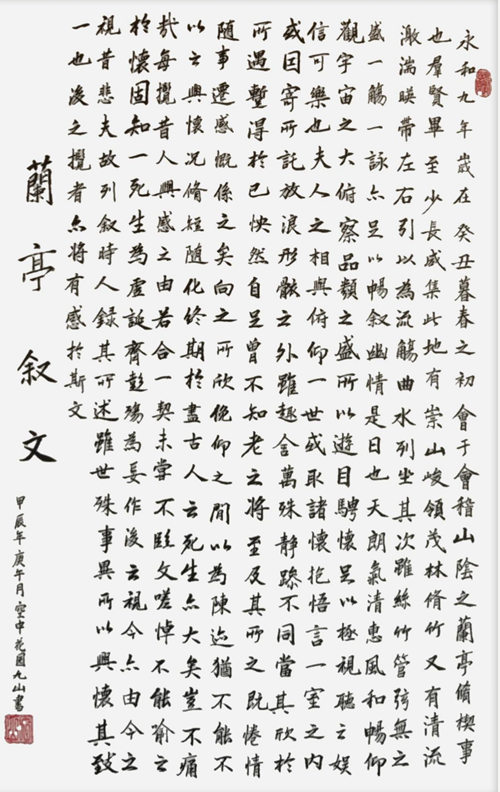 永和九年歲在癸丑暮春之初會于會稽山陰之蘭亭脩禊事
也羣賢畢至少長咸集此地有崇山峻領茂林脩竹又有清流
激湍暎帶左右引以為流觴曲水列坐其次雖絲竹管弦無之
盛一觴一詠亦足以暢叙幽情是日也天朗氣清惠風和暢仰
觀宇宙之大俯察品類之盛所以遊目騁懷足以極視聽之娛
信可樂也夫人之相與俯仰一世或取諸懷抱悟言一室之内
或因寄所託放浪形骸之外雖趣舍萬殊靜躁不同當其欣於
所遇蹔得於己怏然自足曾不知老之將至及其所之既惓情
隨事遷感慨係之矣向之所欣俛仰之閒以為陳迹猶不能不
以之興懷況脩短隨化終期於盡古人云死生亦大矣豈不痛
哉每攬昔人興感之由若合一契未嘗不臨文嗟悼不能喻之
於懷固知一死生為虛誕齊彭殤為妄作後之視今亦由今之
視昔悲夫故列叙時人錄其所述雖世殊事異所以興懷其致
一也後之攬者亦將有感於斯文
蘭亭叙文
甲辰年庚午月空中花園九山書